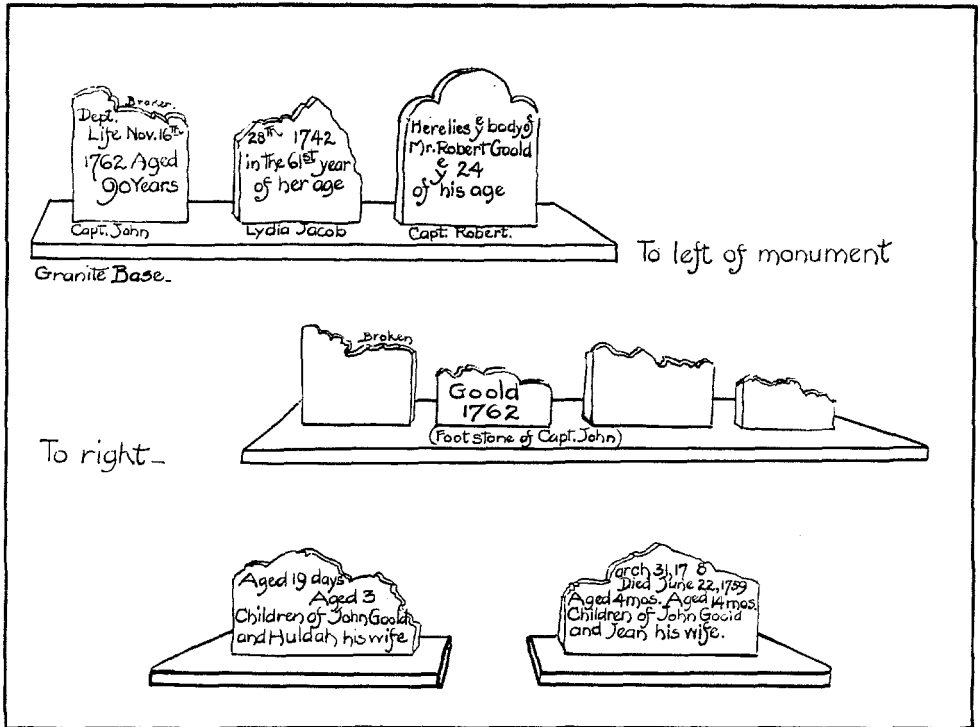 Broken.
Dept.
Life Nov. 16th
1762 Aged
90 Years
Capt. John
28th 1742
in the 61st year
of her age
Lydia Jacob
Here lies ye body of
Mr. Robert Goold
ye 24
of his age
Capt. Robert.
Granite Base_
To left of monument
Broken
Goold
1762
(Foot stone of Capt. John)
To right_
Aged 19 days
Aged 3
Children of John Goold
and Huldah his wife
arch 31, 17 8
Died June 22, 1759
Aged 4 mos. Aged 14 mos.
Children of John Goold
and Jean his wife.